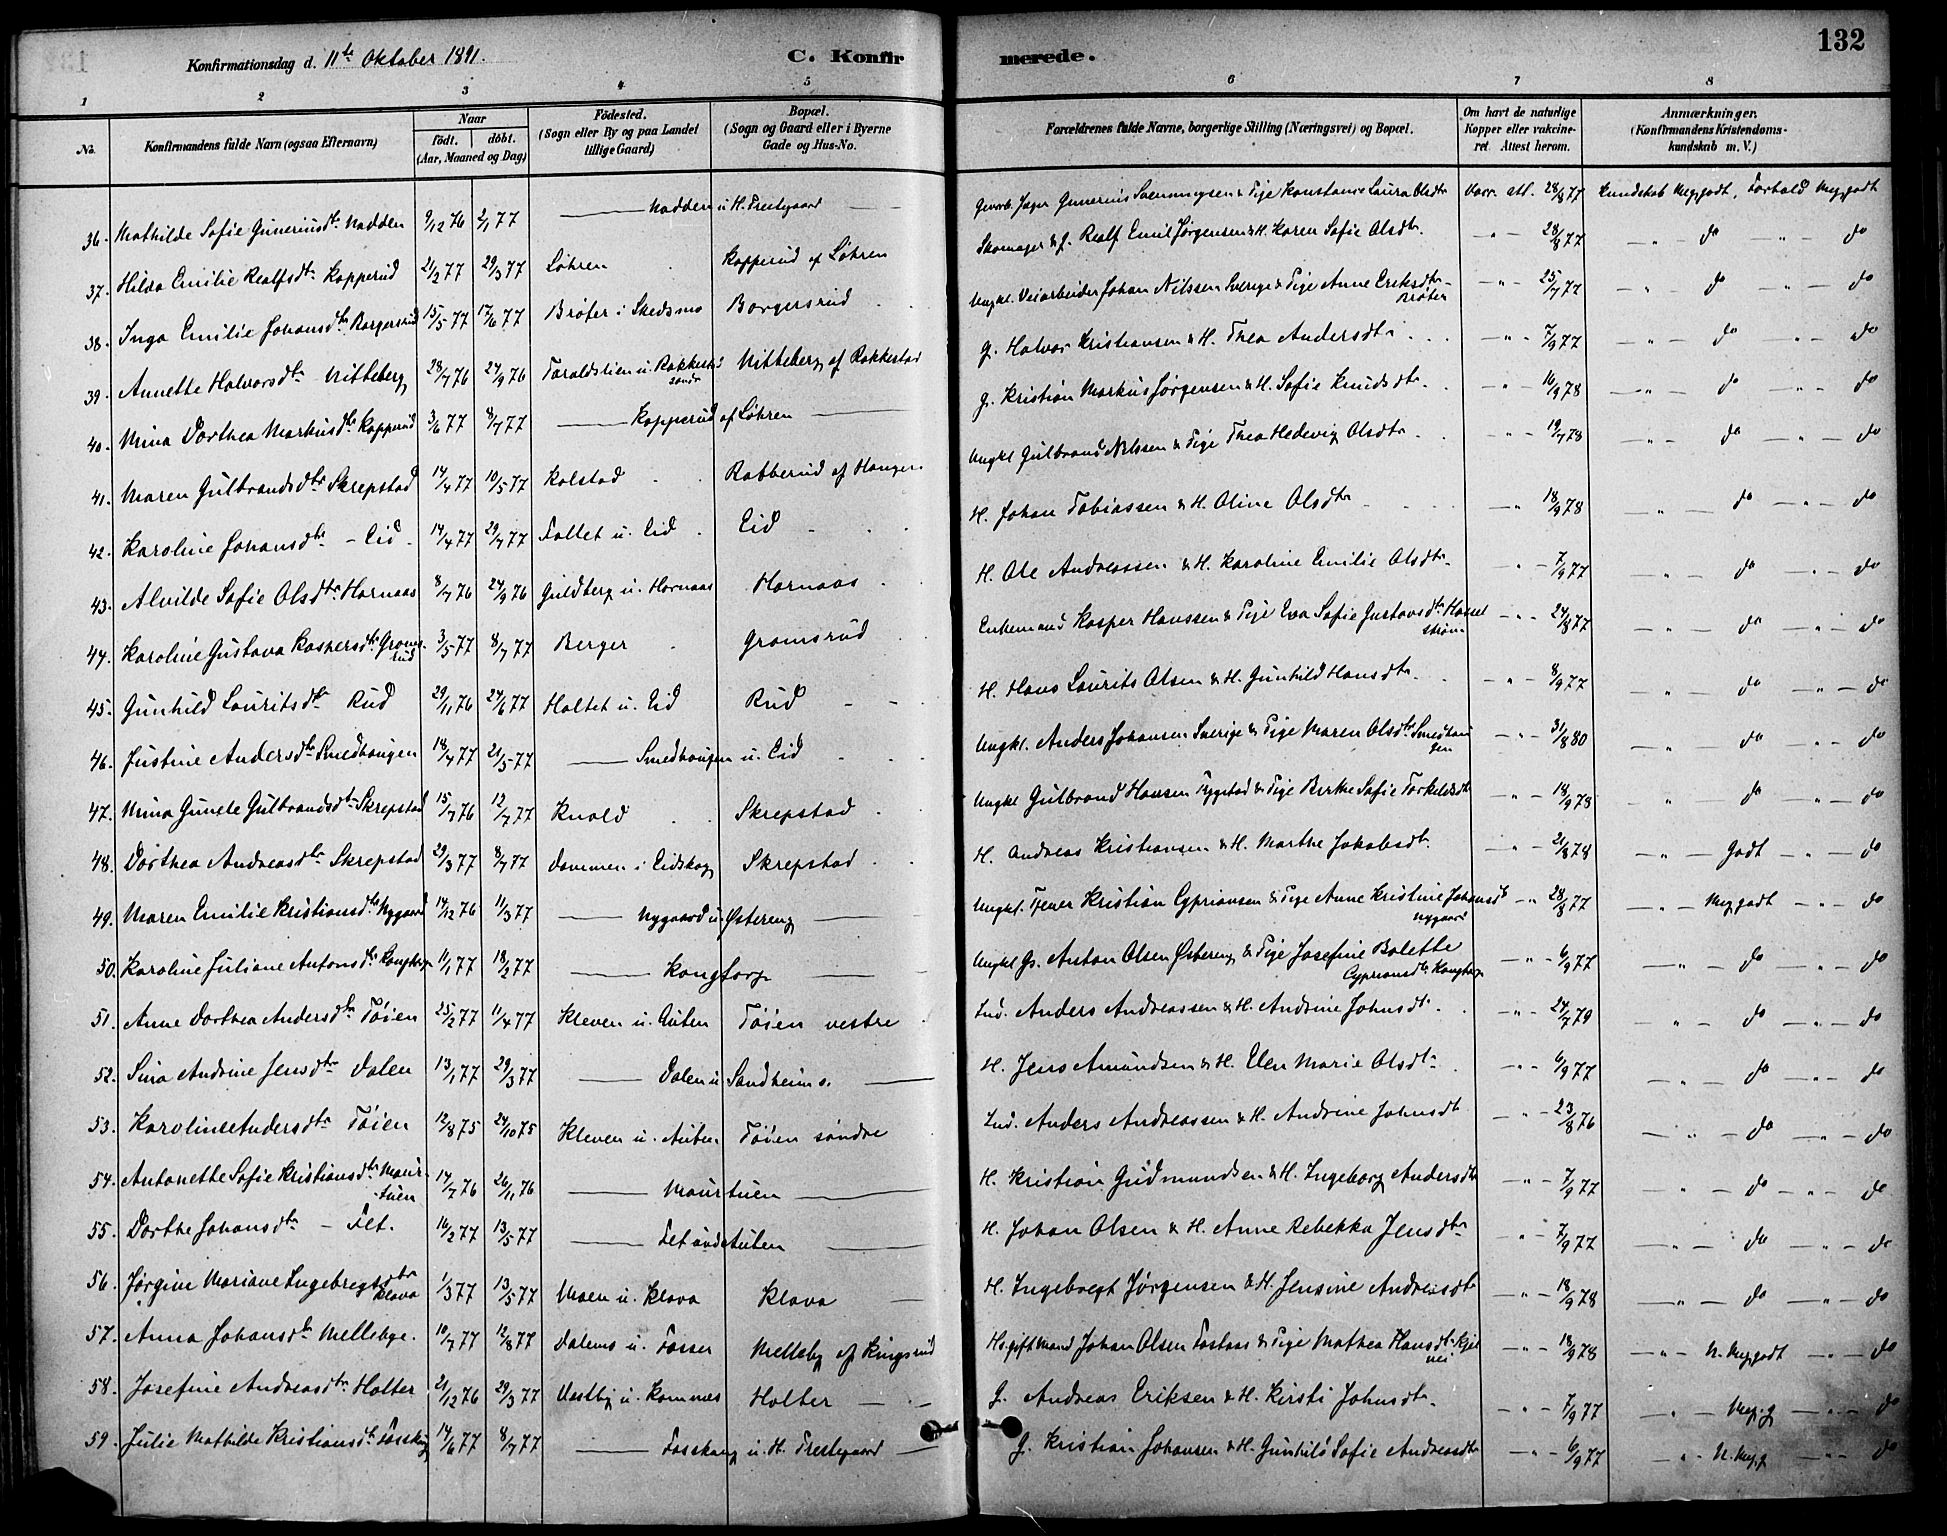 132
Konfirmationsdag d. 11te Oktober 1891. C. Konfirmerede.
1 2 3 4 5 6 7 8
No. Konfirmandens fulde Navn (ogsaa Efternavn) Naar födt. döbt. (Aar, Maaned og Dag) Födested. (Sogn eller By og paa Landet tillige Gaard) Bopæl. (Sogn og Gaard eller i Byerne Gade og Hus-No. Forældrenes fulde Navne, borgerlige Stilling (Næringsvei) og Bopæl. Om havt de naturlige Kopper eller vakcineret. Attest herom. Anmærkninger. (Konfirmandens Kristendomskundskab m. V.)
36. Mathilde Sofie Gunneriusdtr Nadden 9/12 76 2/1 77 — Nadden u. H. Prestegaard — Gunerius Svenningsen & Pige Konstance Laura Olsdtr Vacc. att. 28/8 77 Kundskab Meg.godt, Forhold Meg.godt
37. Hilda Emilie Realfsdtr Kopperud 21/2 77 29/3 77 Löhren Kopperud af Löhren Skomager & g. Realf Emil Jørgensen & H. Karen Sofie Olsdtr. — " — 28/8 77 — " — do — " — do
38. Inga Emilie Johansdtr Borgersrud 15/5 77 17/6 77 Bröter i Skedsmo Borgersrud Ungkl. Veiarbeider Johan Nilssen Sverige & Pige Anne Eriksdtr Bröter — " — 25/7 77 — " — do — " — do
39. Annette Halvorsdtr Nitteberg 28/7 76 24/9 76 Taraldslien u. Rakkestad søndr Nitteberg af Rakkestad g. Halvor Kristiansen & H. Thea Andersdtr — " — 7/9 77 — " — do — " — do
40. Mina Dorthea Markusdtr Kopperud 3/6 77 8/7 77 — Kopperud af Löhren — g. Kristian Markus Jørgensen & H. Sofie Knudsdtr. — " — 16/9 78 — " — do — " — do
41. Maren Gulbrandsdtr Skrepstad 14/4 77 10/5 77 Kolstad Rabberud af Haugen Ungkl Gulbrand Nilssen & Pige Thea Hedevig Olsdtr — " — 19/7 78 — " — do — " — do
42. Karoline Johansdtr – Eid 14/4 77 29/7 77 Tallet u. Eid Eid H. Johan Tobiassen & H. Oline Olsdtr — " — 18/9 78 — " — do — " — do
43. Alvilde Sofie Olsdtr Hornaas 8/7 76 24/9 76 Guldberg u. Hornaas Hornaas H. Ole Andreassen & H. Karoline Emilie Olsdtr. — " — 7/9 77 — " — do — " — do
44. Karoline Gustava Kaspersdtr Gromsrud 3/5 77 8/7 77 Berger Gromsrud Enkemand Kasper Hanssen & Pige Eva Sofie Gustavsdtr Hasselstrøm — " — 24/8 77 — " — do — " — do
45. Gunhild Lauritsdtr Rud 29/11 76 24/6 77 Haltet u. Eid Rud H. Hans Laurits Olsen & H. Gunhild Hansdtr. — " — 8/9 77 — " — do — " — do
46. Justine Andersdtr Smedhaugen 18/4 77 21/5 77 — Smedhaugen u. Eid Ungkl. Anders Johansen Sverige & Pige Maren Olsdtr Smedhaugen — " — 31/8 80 — " — do — " — do
47. Mina Gunele Gulbrandsdtr Skrepstad 15/7 76 12/7 77 Knold Skrepstad Ungkl Gulbrand Hansen Tygestad & Pige Birthe Sofie Torkildsdtr — " — 18/9 78 " — do — " — do
48. Dorthea Andreasdtr Skrepstad 29/3 77 8/7 77 Dammen i Eidskog Skrepstad H. Andreas Kristiansen & H. Marthe Jakobsdtr. — " — 21/8 78 — " — Godt — " — do
49. Maren Emilie Kristiansdtr Nygaard 14/12 76 11/3 77 — Nygaard u. Østereng — Ungkl. Tjener Kristian Cypriansen & Pige Anne Kristine Johansdtr Nygaard — " — 28/8 77 — " — Meg.godt — " — do
50. Karoline Juliane Antonsdtr Kongtorp 11/1 77 18/2 77 — Kongtorp — Ungkl Gs. Anton Olsen Østereng & Pige Josefine Bolette Cypriansdtr Kongtorp — " — 6/9 77 — " — do — " — do
51. Anne Dorthea Andersdtr Töien 25/2 77 11/4 77 Kleven u. Auten Töien vestre Ind. Anders Andreassen & H. Andrine Johnsdtr. — " — 24/7 79 — " — do — " — do
52. Sina Andrine Jensdtr Dalen 13/1 77 29/3 77 — Dalen u. Sandheim s. — H. Jens Amundsen & H. Elen Marie Olsdtr — " — 6/9 77 — " — do — " — do
53. Karoline Andersdtr Töien 12/8 75 24/10 75 Kleven u. Auten Töien söndre Ind. Anders Andreassen & H. Andrine Johnsdtr — " — 23/8 76 — " — do — " — do
54. Antonette Sofie Kristiansdtr Maurtuen 14/7 76 26/11 76 — Maurtuen — H. Kristian Gudmundsen & H. Ingeborg Andersdtr — " — 7/9 77 — " — do — " — do
55. Dorthe Johansdtr – Fet. 16/2 77 13/5 77 — Fet und Auten — H. Johan Olsen & H. Anne Rebekka Jensdtr — " — 7/9 77 — " — do — " — do
56. Jørgine Mariane Ingebregtsdtr Klova 1/3 77 13/5 77 Moen u. Klova Klova — H. Ingebregt Jørgensen & H. Jensine Andreasdtr — " — 18/9 78 — " — do — " — do
57. Anna Johansdtr Mellebye. 10/7 77 12/8 77 Dalems u. Fosser Melleby af Kingsrud gift Mand Johan Olsen Fostaas & Pige Mathea Hansdtr — " — 18/9 78 — " — N. Meg.godt — " — do
58. Josefine Andreasdtr Holter 21/12 76 29/3 77 Vestby u. Komnæs Holter — " — g. Andreas Eriksen & H. Kirsti Johnsdtr. — " — 7/9 77 — " — Meg. g — " — do
59. Julie Mathilde Kristiansdtr Fosskaug 14/6 77 8/7 77 — Fosskaug u. H. Prestegaard — g. Kristian Johansen & H. Gunhild Sofie Andreasdtr — " — 6/9 77 — " — N. Meg. g — " — do